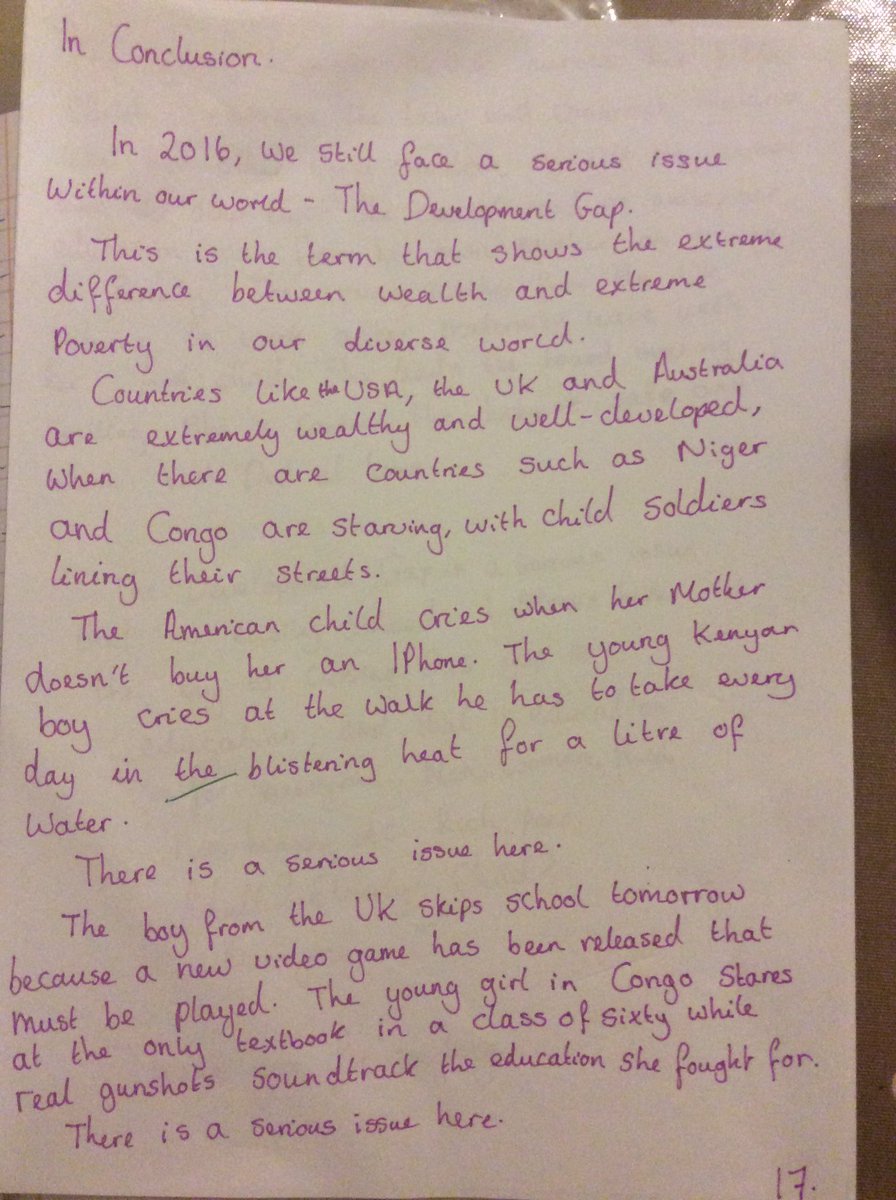 In Conclusion.
In 2016, we still face a serious issue
Within our world - The Development Gap.
This is the term that shows the extreme
difference between wealth and extreme
Poverty in our diverse world.
Countries like the USA, the UK and Australia
are extremely wealthy and well-developed,
When there are countries such as Niger
and Congo are starving, with child soldiers
lining their streets.
The American child cries when her Mother
doesn't buy her an IPhone. The young Kenyan
boy cries at the walk he has to take every
day in the blistering heat for a litre of
Water.
There is a serious issue here.
The boy from the UK skips school tomorrow
because a new video game has been released that
must be played. The young girl in Congo Stares
at the only textbook in a class of sixty while
real gunshots soundtrack the education she fought for.
There is a serious issue here.
17.